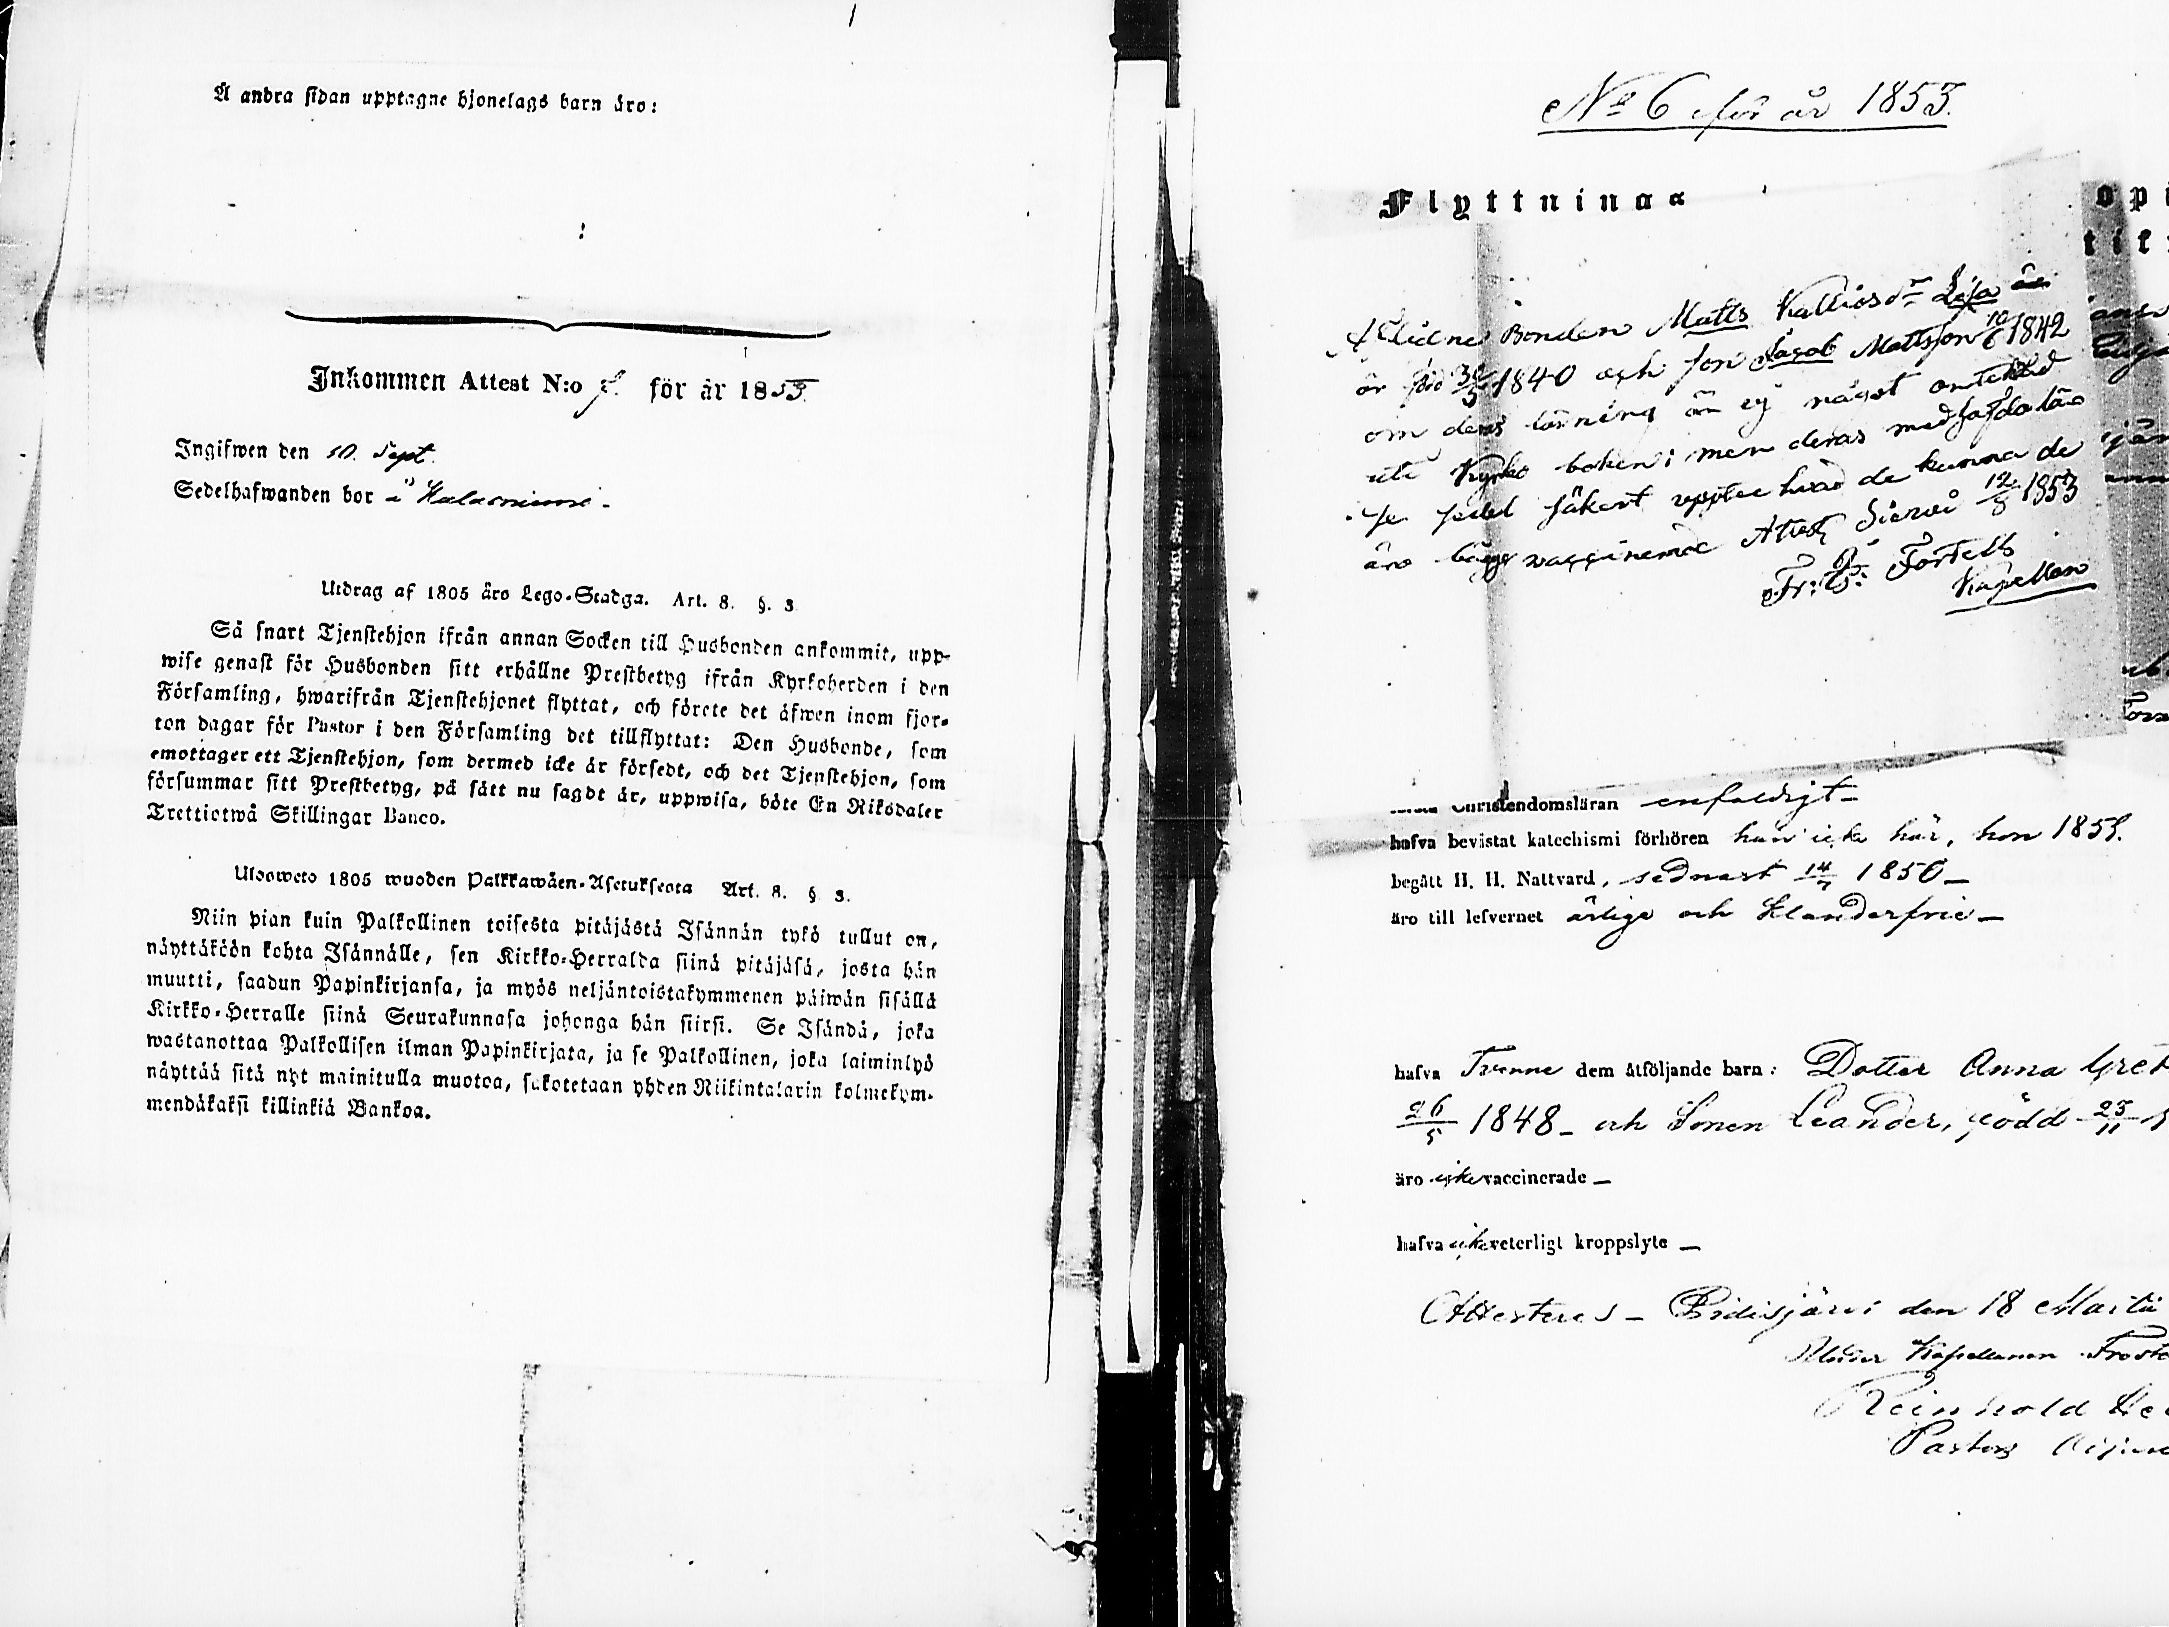 Å andra sidan upptagne hjonelags barn äro:
Inkommen Attest N:o för år 1853.
Ingifwen den 10. Sept.
Sedelhafwanden bor i
Utdrag af 1805 års Lego-Stadga. Art. 8. §. 3
Så snart Tjenstehjon ifrån annan Socken till Husbonden ankommit, upp-
wise genast för Husbonden sitt erhållne Prestbetyg ifrån Kyrkoherden i den
Församling, hwarifrån Tjenstehjonet flyttat, och förete det äfwen inom fjor-
ton dagar för Pastor i den Församling det tillflyttat: Den Husbonde, som
emottager ett Tjenstehjon, som dermed icke är försedt, och det Tjenstehjon, som
försummar sitt Prestbetyg, på sätt nu sagdt är, uppwisa, böte En Riksdaler
Trettiotwå Skillingar Banco.
Ulosweto 1805 wuoden Palkkawäen-Asetuksesta Art. 8. § 3.
Niin pian kuin Palkollinen toisesta pitäjästä Isännän tykö tullut on,
näyttäköön kohta Isännälle, sen Kirkko-Herralda siinä pitäjäsä, josta hän
muutti, saadun Papinkirjansa, ja myös neljäntoistakymmenen päiwän sisällä
Kirkko-Herralle siinä Seurakunnasa johonga hän siirsi. Se Isändä, joka
wastanottaa Palkollisen ilman Papinkirjata, ja se Palkollinen, joka laiminlyö
näyttää sitä nyt mainitulla muotoa, sakotetaan yhden Riikintalarin kolmekym-
mendäkaksi killinkiä Bankoa.
N:o 6 för år 1853.
Flyttnings
Aflidne Bonden Matts Kallios dr Lisa
är född 30/3 1840 och son Jacob Mattsson 10/6 1842
om deras läsning är ej något antecknad
uti Kyrko boken; men deras medhafda lä
se sedel säkert upptee hvad de kunna de
äro bägge vaccinerade Attest Sievi 12/8 1853
Fr: Forsell
Kapellan
Christendomsläran enfaldigt
hafva bevistat katechismi förhören han icke här, hon 1851.
begått H. H. Nattvard, sednast 14/7 1850
äro till lefvernet ärlige och klanderfrie
hafva Tvenne dem åtföljande barn: Dotter Anna Gret
26/5 1848 och Sonen Leander, född 23/11
äro icke vaccinerade
hafva icke veterligt kroppslyte
Attesteres Pidisjärvi den 18 Martii
Kapellanen
Reinhold
Pastors